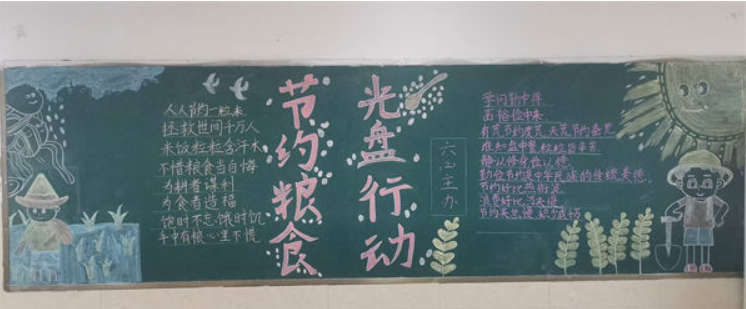 人人节约一粒米
拯救世间千万人
米饭粒粒含汗水
不惜粮食当自悔
为耕者谋利
为食者造福
饱时不忘饿时饥
手中有粮心里不慌
节约粮食
光盘行动
六(2)主办
学问勤中得
富裕俭中来
谁知盘中餐 粒粒皆辛苦
静以修身俭以德
勤俭节约是中华民族的传统美德
节约好比燕衔泥
浪费好比河决堤